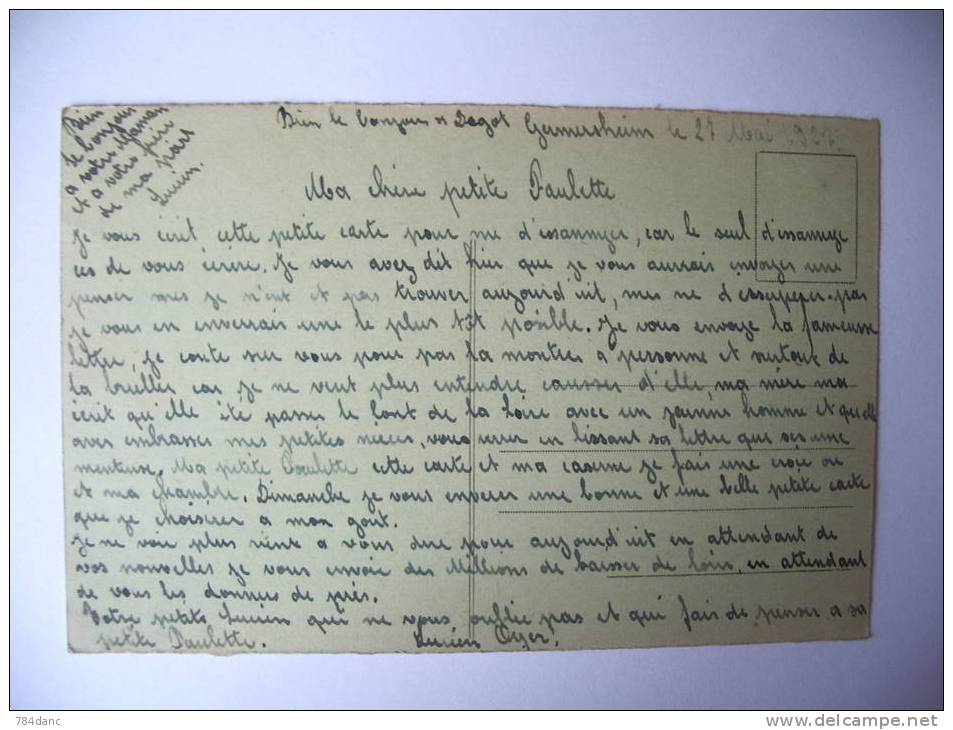 Bien
le bonjour
a votre Maman
et a votre père
de ma part
Lucien.
Bien le bonjour a Germersheim le 21 Mai 1927.
Ma chère petite Paulette
Je vous écrit cette petite carte pour me d'esannuyer, car le seul d'esannuye
ces de vous ècrire. Je vous avez dit hier que je vous aurrais envoyer une
penser mes je n'ent et pas trouver aujourd'uit, mes ne d'esespeper-pas
je vous en enverrais une le plus tôt posible. Je vous envoye la fameusse
lettre, je conte sur vous pour pas la montrer a personne et surtout de
la bruller car je ne veut plus entendre causser d'elle, ma mère ma
écrit qu'elle ité passer le long de la loire avec un jeunne homme et qu'elle
avez embrasser mes petites nieces, vous verrer en lissant sa lettre que ses une
menteuse. Ma petite Paulette cette carte et ma caserne je fais une croie ou
et ma chambre. Dimanche je vous enverer une bonne et une belle petite carte
que je choisirer a mon gout.
Je ne voie plus rient a vous dire pour aujourd'uit en attendant de
vos nouvelles je vous envoie des Millions de baisser de loin, en attendant
de vous les donnes de près.
Votre petits Lucien qui ne vous oublie pas et qui fais de penser a sa
petite Paulette. Lucien
784danc
www.delcampe.net